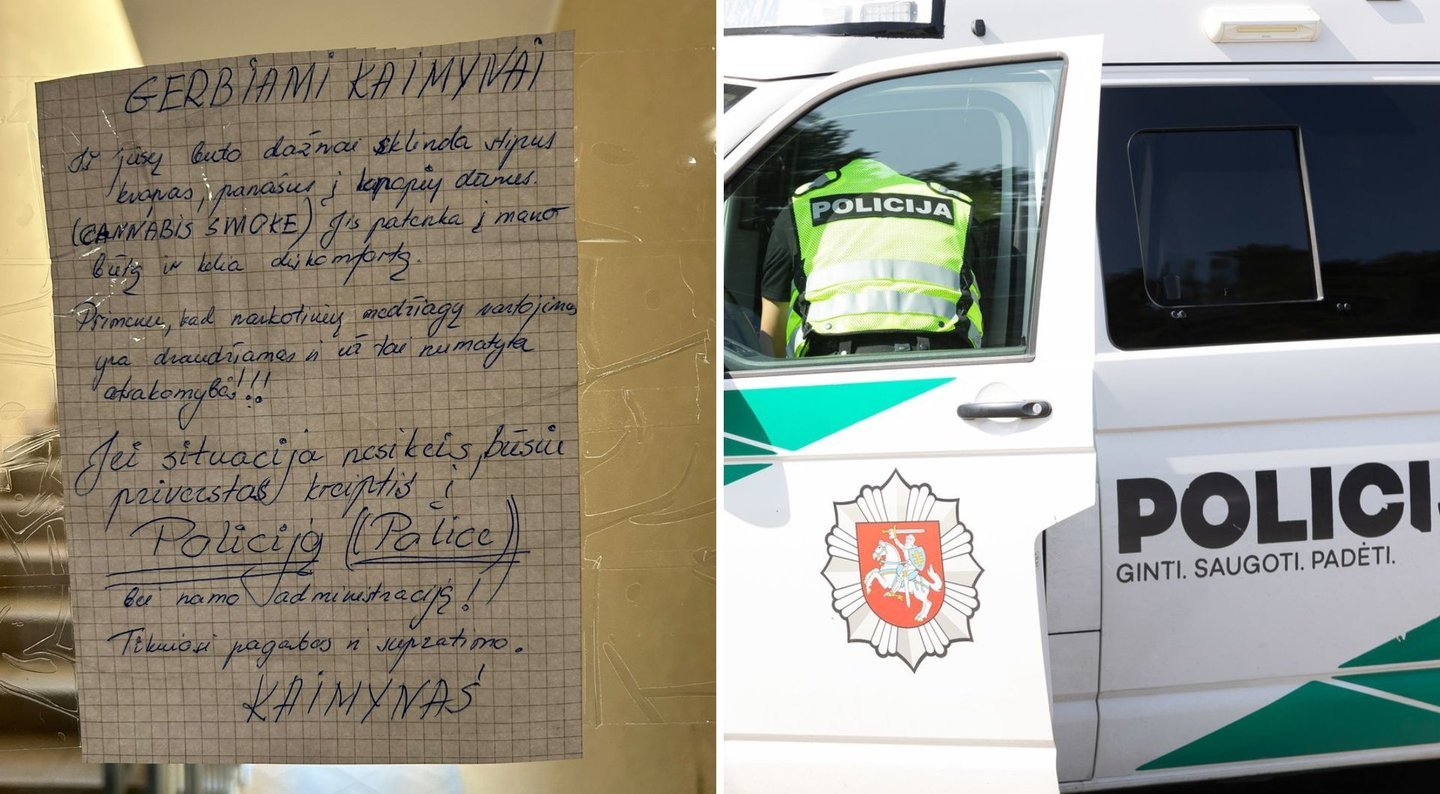 GERBIAMI KAIMYNAI
Iš jūsų buto dažnai sklinda stiprus
kvapas, panašus į kanapių dūmus.
(CANNABIS SMOKE) Jis patenka į mano
butą ir kelia diskomfortą.
Primenu, kad narkotinių medžiagų vartojimas
yra draudžiamas ir už tai numatyta
atsakomybė!!!
Jei situacija nesikeis, būsiu
priverstas kreiptis į
Policiją (Police)
bei namo administraciją!
Tikiuosi pagarbos ir supratimo.
KAIMYNAS!
POLICIJA
POLICIJ
GINTI. SAUGOTI. PADĖTI.